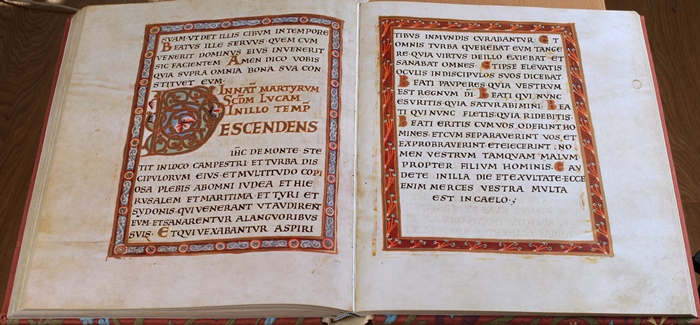 SUAM·UT DET ILLIS CIBUM IN TEMPORE
BEATUS ILLE SERVUS QUEM CUM
VENERIT DOMINUS EIUS INVENERIT
SIC FACIENTEM· AMEN DICO VOBIS
QUIA SUPRA OMNIA BONA SUA CON
STITVET EUM·
IN NAT MARTYRUM
SCDM LUCAM
IN ILLO TEMP
DESCENDENS
IHC DE MONTE·STE
TIT IN LOCO CAMPESTRI·ET TURBA DIS
CIPULORUM EIUS·ET MULTITUDO COPI
OSA PLEBIS AB OMNI IUDEA ET HIE
RUSALEM ET MARITIMA·ET TYRI ET
SYDONIS·QUI VENERANT UT AUDIRENT
EUM·ET SANARENTUR A LANGUORIBUS
SUIS· ET QUI VEXABANTUR A SPIRI
TIBUS INMUNDIS CURABANTUR· ET
OMNIS TURBA QUEREBAT EUM TANGE
RE·QUIA VIRTUS DE ILLO EXIEBAT·ET
SANABAT OMNES· ET IPSE ELEVATIS
OCULIS IN DISCIPULOS SUOS DICEBAT·
BEATI PAUPERES·QUIA VESTRUM
EST REGNUM DI· BEATI QUI NUNC
ESURITIS·QUIA SATURABIMINI· BEA
TI QUI NUNC FLETIS·QUIA RIDEBITIS·
BEATI ERITIS CUM VOS ODERINT HO
MINES·ET CUM SEPARAVERINT VOS·ET
EXPROBRAVERINT·ET EIECERINT·NO
MEN VESTRUM TAMQUAM MALUM
PROPTER FILIUM HOMINIS· GAU
DETE IN ILLA DIE·ET EXULTATE·ECCE
ENIM MERCES VESTRA MULTA
EST IN CAELO·;